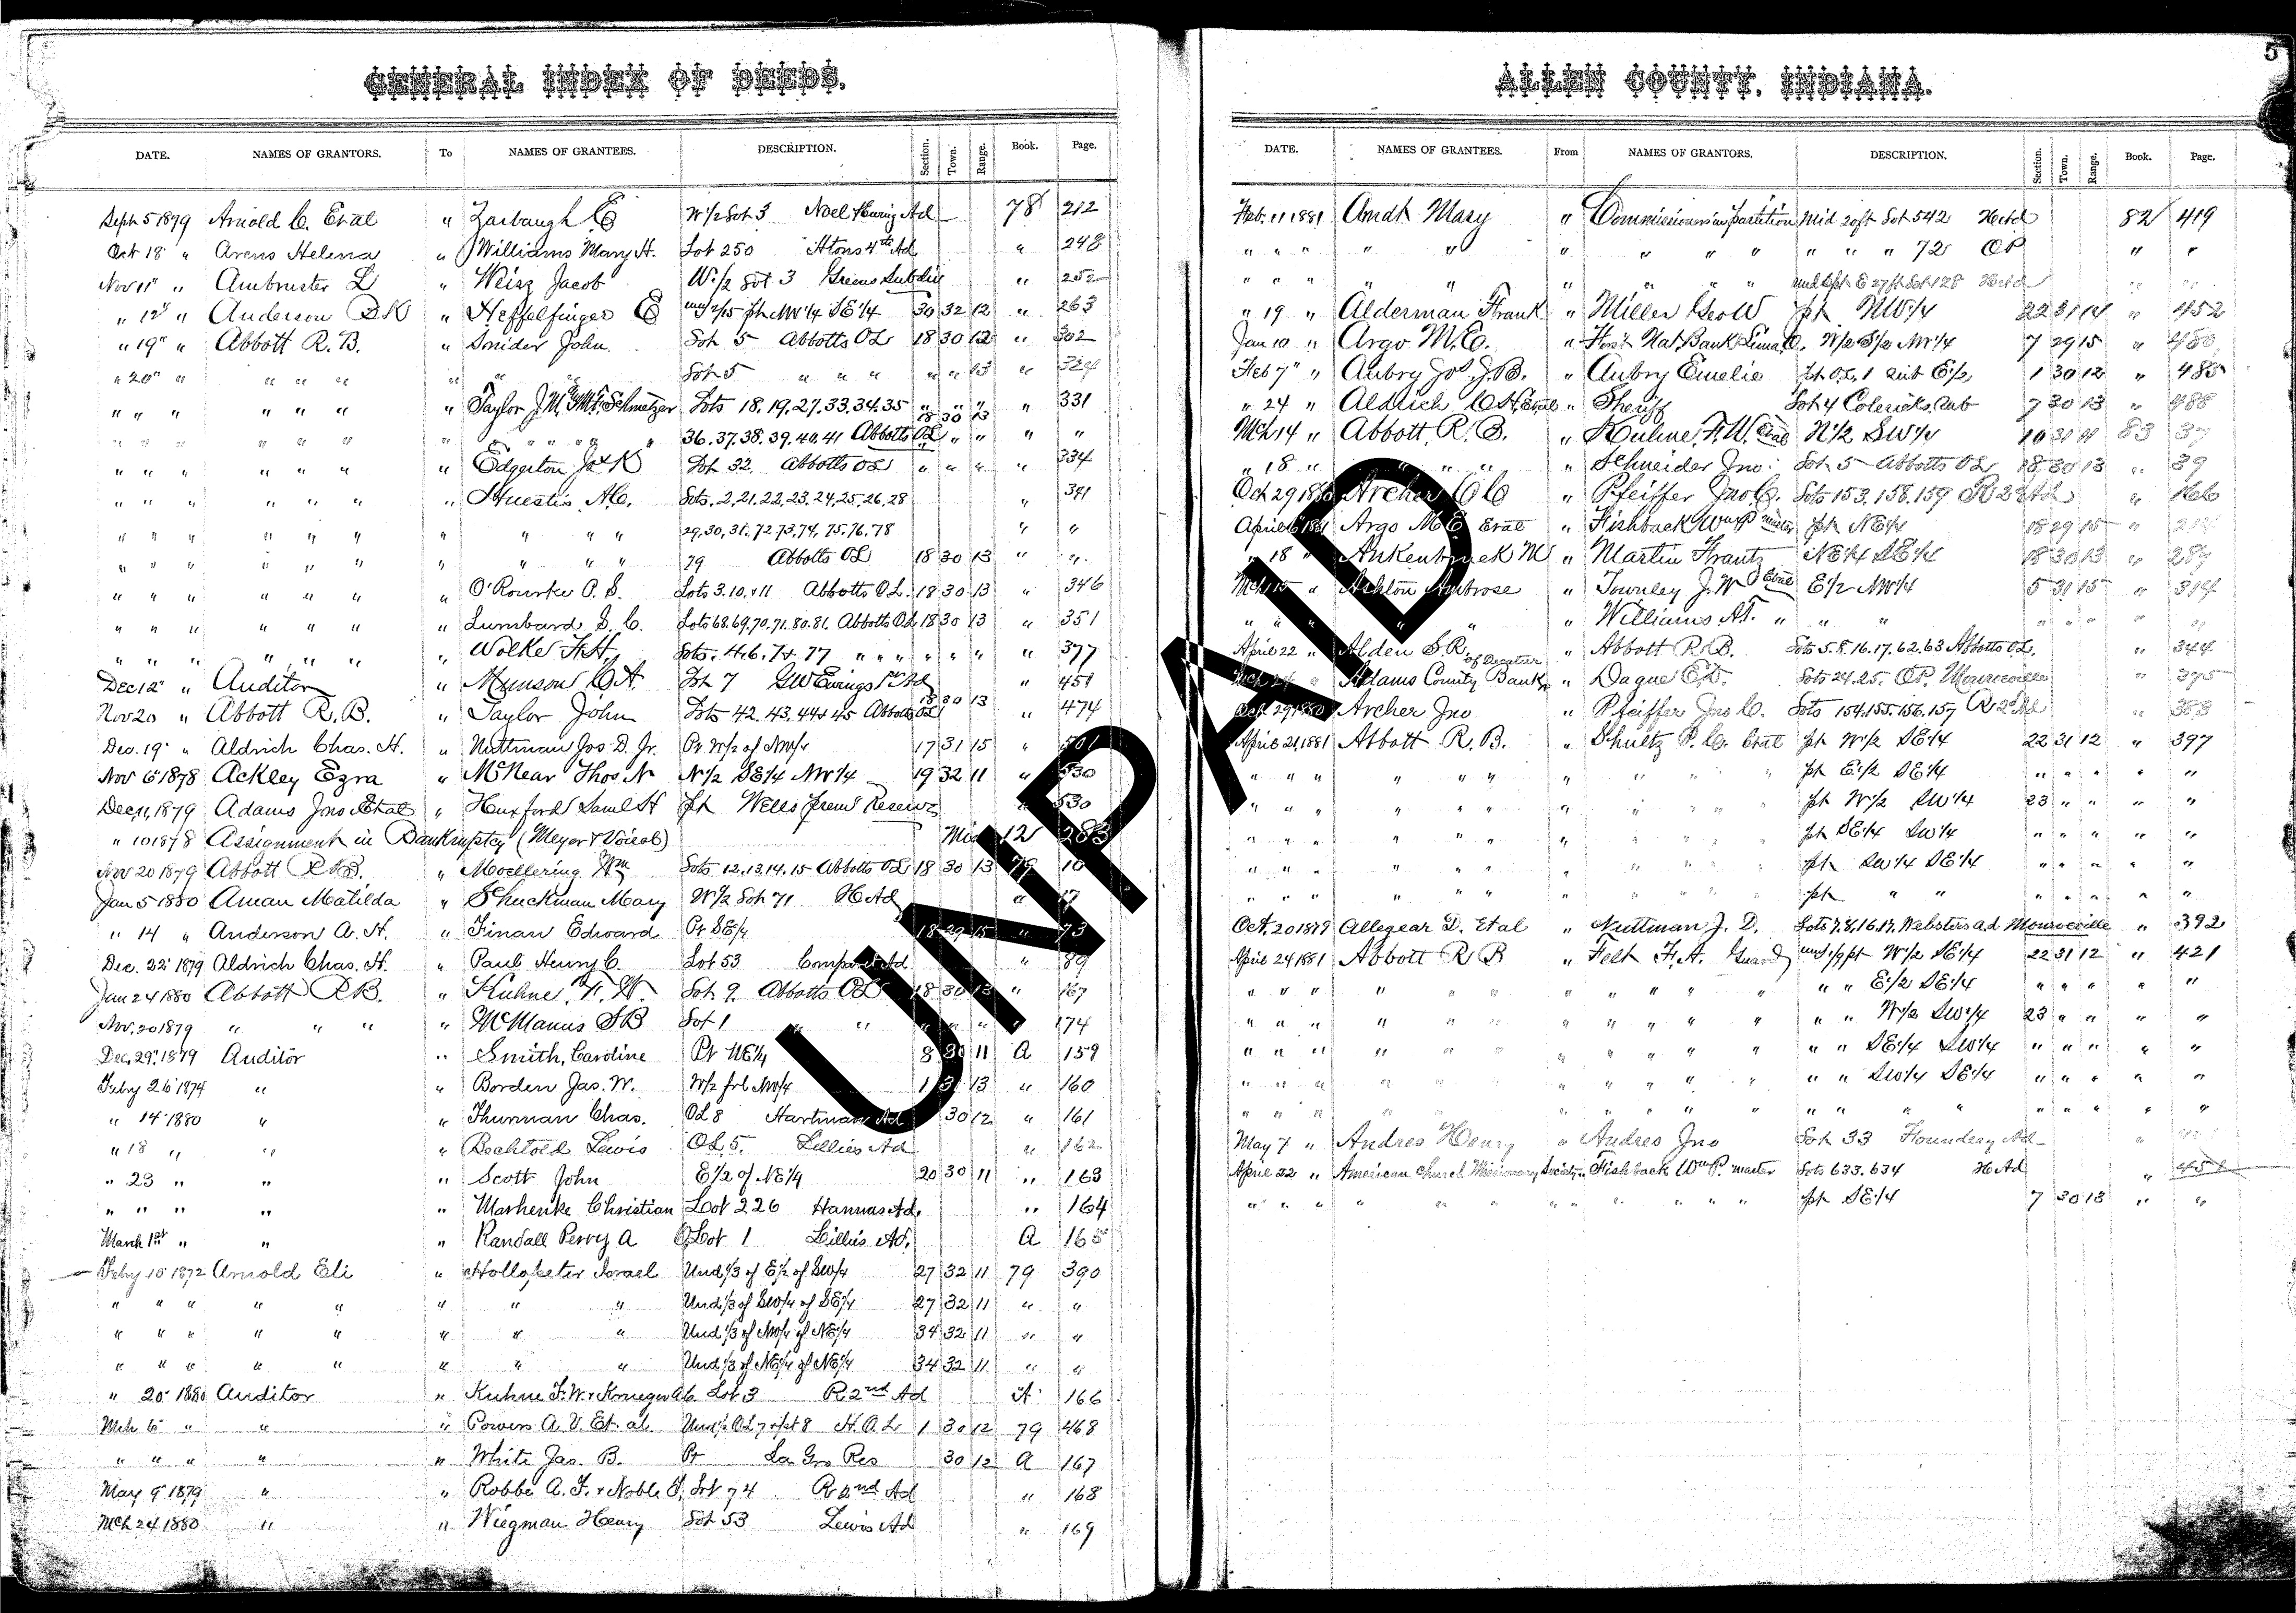 5
GENERAL INDEX OF DEEDS.
DATE. NAMES OF GRANTORS. To NAMES OF GRANTEES. DESCRIPTION. Section. Town. Range. Book. Page.
Sept 5 1879 Arnold C. Et al " Zarbaugh E W 1/2 Lot 3 Noel Ad 78 212
Oct 18 " Arens Helena " Williams Mary H. Lot 250 4th Ad " 248
Nov 11" " Ambruster L " Weisz Jacob W. 1/2 Lot 3 Greens Subdiv " 252
" 12" " Anderson D K " Heffelfinger E und 2/15 pt NW 1/4 SE 1/4 30 32 12 " 263
" 19" " Abbott R. B. " Snider John Lot 5 Abbotts OL 18 30 13 " 302
" 20" " " " " " " " Lot 5 " " " " " 13 " 324
" " " " " " " Taylor J. M. Schmetzer Lots 18, 19, 27, 33, 34, 35 " " " " 331
" " " " " " " " " " " " 36. 37. 38. 39. 40. 41 Abbotts OL 18 30 13 " "
" " " " " " " Edgerton J K Lot 32. Abbotts OL " " " " 334
" " " " " " " Huestis A. C. Lots, 2, 21, 22, 23, 24, 25, 26, 28 " 341
" " " " " " " " " " 29, 30, 31, 72, 73, 74, 75, 76, 78 " "
" " " " " " " " " " 79 Abbotts OL 18 30 13 " "
" " " " " " " O'Rourke P. S. Lots 3. 10. & 11 Abbotts O.L. 18 30 13 " 346
" " " " " " " Lumbard S. C. Lots 68. 69. 70. 71. 80. 81. Abbotts OL 18 30 13 " 351
" " " " " " " Wolke F. H. Lots. 4. 6. 7 & 77 " " " " " " " 377
Dec 12" " Auditor " Munson C. A. Lot 7 GW Ewings Ad " 451
Nov 20 " Abbott R. B. " Taylor John Lots 42. 43. 44 & 45 Abbotts OL 18 30 13 " 474
Dec. 19" " Aldrich Chas. H. " Nuttman Jos D. Jr. Pt W/2 of NW/4 17 31 15 " 501
Nov 6 1878 Ackley Ezra " McNear Thos N N 1/2 SE 1/4 NW 1/4 19 32 11 " 530
Dec 11, 1879 Adams Jno Et al " Huxford Saml H pt Wells Reserve " 530
" 10 1878 Assignment in Bankruptcy (Meyer & Voirol) Mis 12 283
Nov 20 1879 Abbott R B. " Moellering Wm Lots 12, 13, 14, 15 Abbotts OL 18 30 13 79 10
Jan 5 1880 Aman Matilda " Shuckman Mary W 1/2 Lot 71 H Ad " 17
" 14 " Anderson A. H. " Finan Edward Pt SE/4 18 29 15 " 73
Dec. 22" 1879 Aldrich Chas. H. " Paul Henry C. Lot 53 Comparets Ad " 89
Jan 24 1880 Abbott R B. " Kuhne F. W. Lot 9. Abbotts OL 18 30 13 " 167
Nov. 20 1879 " " " " McManus S B Lot 1 " " " " " " 174
Dec, 29" 1879 Auditor " Smith, Caroline Pt NE 1/4 8 30 11 A 159
Feby 26 1874 " " Borden Jas. W. W/2 frl NW/4 1 31 13 " 160
" 14 1880 " " Thurman Chas. OL 8 Hartman Ad 30 12 " 161
" 18 " " " Bechtold Lewis OL. 5. Lillies Ad " 162
" 23 " " " Scott John E 1/2 of NE 1/4 20 30 11 " 163
" " " " " Marhenke Christian Lot 226 Hannas Ad. " 164
March 1st " " " Randall Perry A O Lot 1 Lillies Ad. A 165
Feby 15 1872 Arnold Eli " Hollopeter Israel Und 1/3 of E/2 of SW/4 27 32 11 79 390
" " " " " " " " Und 1/3 of SW/4 of SE/4 27 32 11 " "
" " " " " " " " Und 1/3 of NW/4 of NE 1/4 34 32 11 " "
" " " " " " " " Und 1/3 of NE/4 of NE 1/4 34 32 11 " "
" 20" 1880 Auditor " Kuhne F. W. & Krueger Lot 3 R 2nd Ad A 166
Mch 6" " " " Powers A. V. Et. al. Und 1/2 OL 7 & pt 8 H. O. L 1 30 12 79 468
" " " " " White Jas. B. Pt La Gro Res 30 12 A 167
May 9 1879 " " Robbe A. F. & Noble Lot 74 R 2nd Ad " 168
Mch 24 1880 " " Wiegman Henry Lot 53 Lewis Ad " 169
ALLEN COUNTY, INDIANA.
DATE. NAMES OF GRANTEES. From NAMES OF GRANTORS. DESCRIPTION. Section. Town. Range. Book. Page.
Feb. 11 1881 Arndt Mary " Commissioners in partition Mid 20ft Lot 542 H Ad 82 419
" " " " " " " " " " " " 72 OP " "
" " " " " " " " " E 27 ft Lot 128 H Ad " "
" 19 " Alderman Frank " Miller Geo W pt NW 1/4 22 31 14 " 452
Jan 10 " Argo M. E. " First Nat. Bank Lima O. W/2 S/2 NW 1/4 7 29 15 " 480
Feb 7" " Aubry J. B. " Aubry Emelie pt O.L. 1 sub E/2 1 30 12 " 485
" 24 " Aldrich C H, Et al " Sheriff Lot 4 Colericks Sub 7 30 13 " 488
Mch 14 " Abbott, R. B. " Kuhne, F. W. Et al N 1/2 SW 1/4 83 37
" 18 " " " " " Schneider Jno. Lot 5 Abbotts OL 18 30 13 " 39
Oct 29 1880 Archer " Pfeiffer Jno C. Lots 153, 158, 159 R 2nd Ad " 166
April 6" 1881 Argo M E Et al " Fishback Wm P master pt NE 1/4 18 29 15 "
" 18 " Ankenbruck M " Martin Frantz NE 1/4 SE 1/4 18 30 13 " 287
Mch 15 " Ashton Ambrose " Townley J. W Et al E/2 NW 1/4 5 31 15 " 314
" " " " " " Williams H. " " " " " " " "
April 22 " Alden S. R. " Abbott R. B. Lots 5. 8. 16. 17. 62, 63 Abbotts O.L. " 344
Mch 24 " Adams County Bank of Decatur " Dague E. D. Lots 24. 25. OP. Monroeville " 375
Oct. 29 1880 Archer Jno " Pfeiffer Jno C. Lots 154. 155. 156. 157 R 2nd Ad " 383
April 21, 1881 Abbott R. B. " Shultz P. C. Et al pt W 1/2 SE 1/4 22 31 12 " 397
" " " " " " " " " " pt E 1/2 SE 1/4 " " " " "
" " " " " " " " " " pt W 1/2 SW 1/4 23 " " " "
" " " " " " " " " " pt SE 1/4 SW 1/4 " " " " "
" " " " " " " " " " pt SW 1/4 SE 1/4 " " " " "
" " " " " " " " " " pt " " " " " " "
Oct. 20 1879 Allegear D. Et al " Nuttman J. D. Lots 7, 8, 16, 17, Websters ad Monroeville " 392
April 24 1881 Abbott R B " Felt F. A. Guard und 1/9 pt W/2 SE 1/4 22 31 12 " 421
" " " " " " " " " " " " " E/2 SE 1/4 " " " " "
" " " " " " " " " " " " " W/2 SW 1/4 23 " " " "
" " " " " " " " " " " " " SE 1/4 SW 1/4 " " " " "
" " " " " " " " " " " " " SW 1/4 SE 1/4 " " " " "
" " " " " " " " " " " " " " " " " " " "
May 7 " Andres Henry " Andres Jno Lot 33 Foundery Ad "
April 22 " American Church Missionary Society " Fishback Wm P. master Lots 633. 634 H Ad " 451
" " " " " " " " " " " " pt SE 1/4 7 30 13 " "
UNPAID